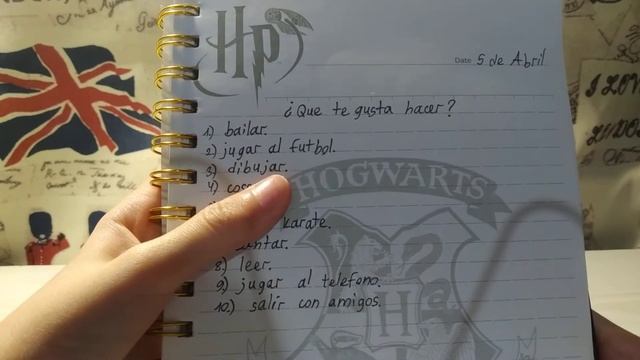 HP
Date 5 de Abril
¿Que te gusta hacer?
1) bailar.
2) jugar al futbol.
3) dibujar.
HOGWARTS
4)
karate.
8) leer.
9) jugar al telefono.
10) salir con amigos.
H
I LO
LONDON